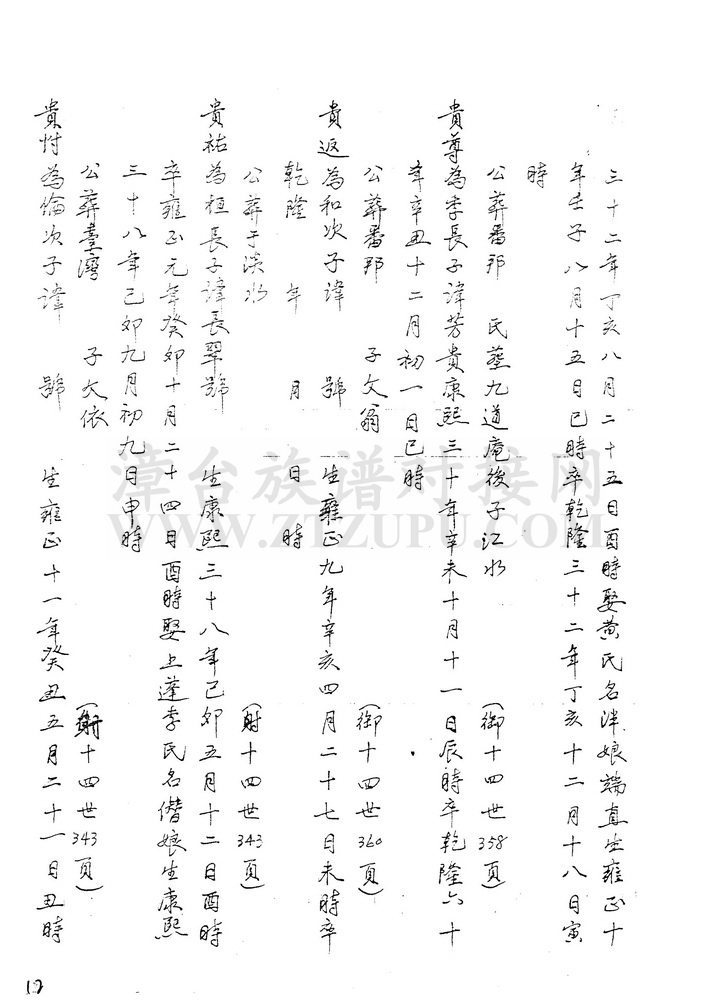 三十二年丁亥八月二十五日酉時娶黄氏名泮娘端直生雍正十
年壬子八月十五日巳時卒乾隆三十二年丁亥十二月十八日寅
時
公葬番邦 氏葬九道庵後子江水 (御十四世358頁)
貴尊為季長子諱芳貴康熙三十年辛未十月十一日辰時卒乾隆六十
年辛丑十二月初一日巳時
公葬番邦 子文翁 (御十四世360頁)
貴返為和次子諱 號 生雍正九年辛亥四月二十七日未時卒
乾隆 年 月 日 時
公葬于淡水 (射十四世343頁)
貴祐為桓長子諱長翠號 生康熙三十八年己卯五月十二日酉時
卒雍正元年癸卯十月二十四日酉時娶上蓬李氏名僭娘生康熙
三十八年己卯九月初九日申時
公葬臺灣 子文依 (射十四世343頁)
貴忖為倫次子諱 號 生雍正十一年癸丑五月二十一日丑時
漳台族谱对接网
WWW.ZTZUPU.COM